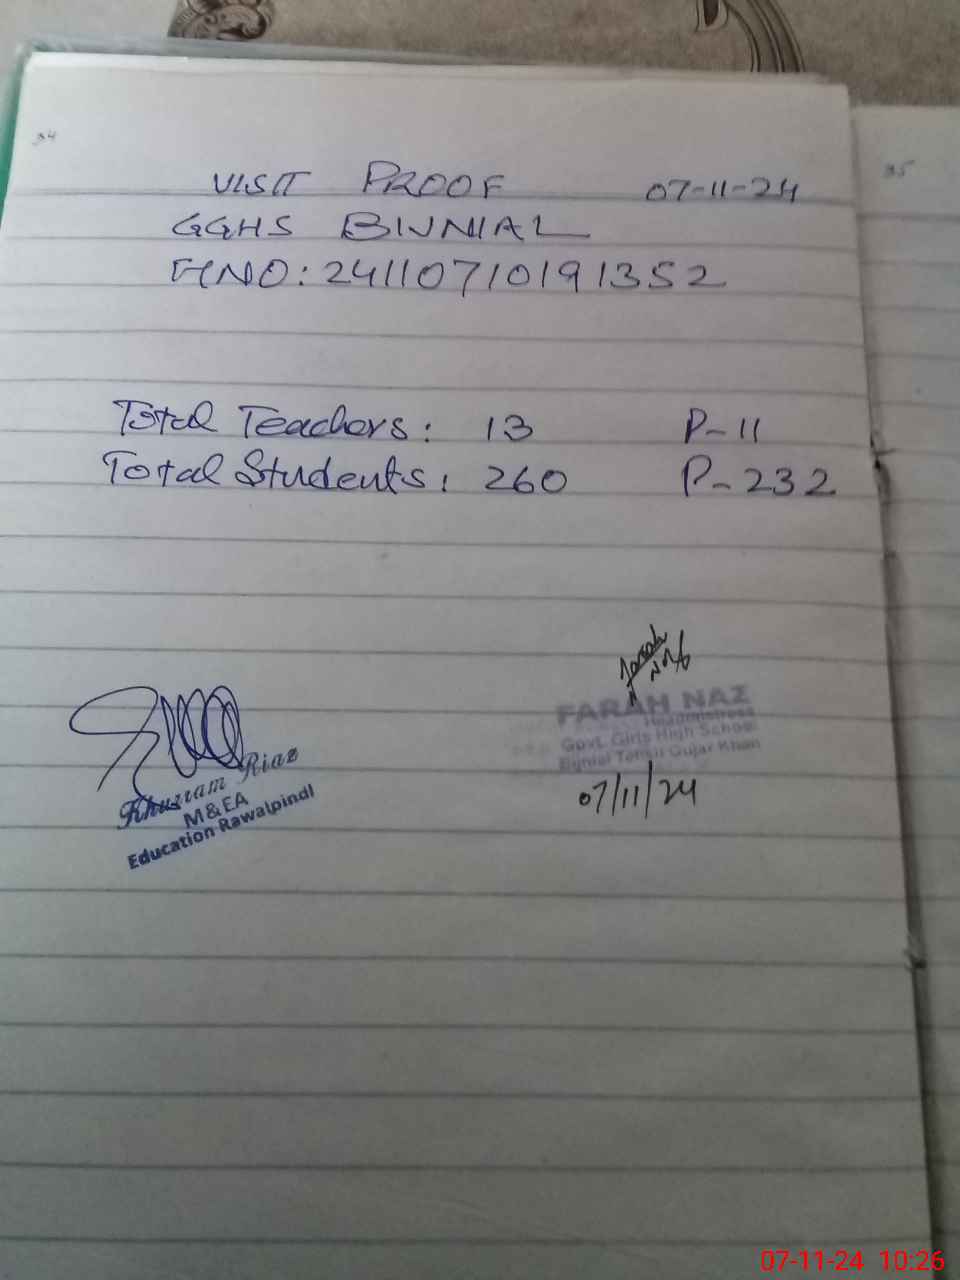 34
35
VISIT PROOF 07-11-24
GGHS BIJNIAL
FINO: 24110710191352
Total Teachers: 13 P-11
Total Students: 260 P-232
Farah
Naz
FARAH NAZ
Headmistress
Govt. Girls High School
Bijnial Tehsil Gujar Khan
07/11/24
Khurram Riaz
M&EA
Education Rawalpindi
07-11-24 10:26